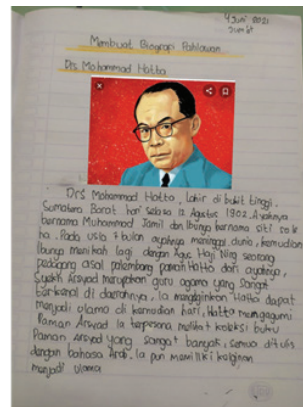 4 Juni 2021
Jum'at
Membuat Biografi Pahlawan
Drs Mohammad Hatta
Drs Mohammad Hatta, Lahir di bukit tinggi,
Sumatera Barat hari selasa 12 Agustus 1902. Ayahnya
bernama Muhammad Jamil dan Ibunya bernama siti sale
ha. Pada usia 7 bulan ayahnya meninggal dunia, kemudian
Ibunya menikah lagi dengan Agus Haji Ning seorang
pedagang asal palembang paman Hatta dari ayahnya,
Syekh Arsyad merupakan guru agama yang sangat
terkenal di daerahnya, Ia menginginkan Hatta dapat
menjadi ulama di kemudian hari, Hatta mengagumi
Paman Arsyad Ia terpesona melihat koleksi buku
Paman Arsyad yang sangat banyak, semua ditulis
dengan bahasa Arab. Ia pun memiliki keinginan
menjadi ulama